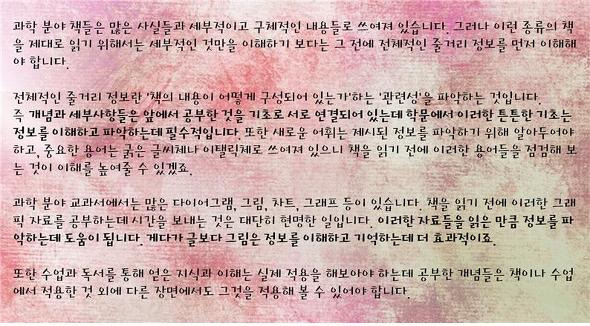 과학 분야 책들은 많은 사실들과 세부적이고 구체적인 내용들로 쓰여져 있습니다. 그러나 이런 종류의 책
을 제대로 읽기 위해서는 세부적인 것만을 이해하기 보다는 그 전에 전체적인 줄거리 정보를 먼저 이해해
야 합니다.
전체적인 줄거리 정보란 '책의 내용이 어떻게 구성되어 있는가'하는 '관련성'을 파악하는 것입니다.
즉 개념과 세부사항들은 앞에서 공부한 것을 기초로 서로 연결되어 있는데 학문에서 이러한 튼튼한 기초는
정보를 이해하고 파악하는데 필수적입니다. 또한 새로운 어휘는 제시된 정보를 파악하기 위해 알아두어야
하고, 중요한 용어는 굵은 글씨체나 이탤릭체로 쓰여져 있으니 책을 읽기 전에 이러한 용어들을 점검해 보
는 것이 이해를 높여줄 수 있겠죠.
과학 분야 교과서에서는 많은 다이어그램, 그림, 차트, 그래프 등이 있습니다. 책을 읽기 전에 이러한 그래
픽 자료를 공부하는데 시간을 보내는 것은 대단히 현명한 일입니다. 이러한 자료들을 읽은 만큼 정보를 파
악하는데 도움이 됩니다. 게다가 글보다 그림은 정보를 이해하고 기억하는데 더 효과적이죠.
또한 수업과 독서를 통해 얻은 지식과 이해는 실제 적용을 해보아야 하는데 공부한 개념들은 책이나 수업
에서 적용한 것 외에 다른 장면에서도 그것을 적용해 볼 수 있어야 합니다.